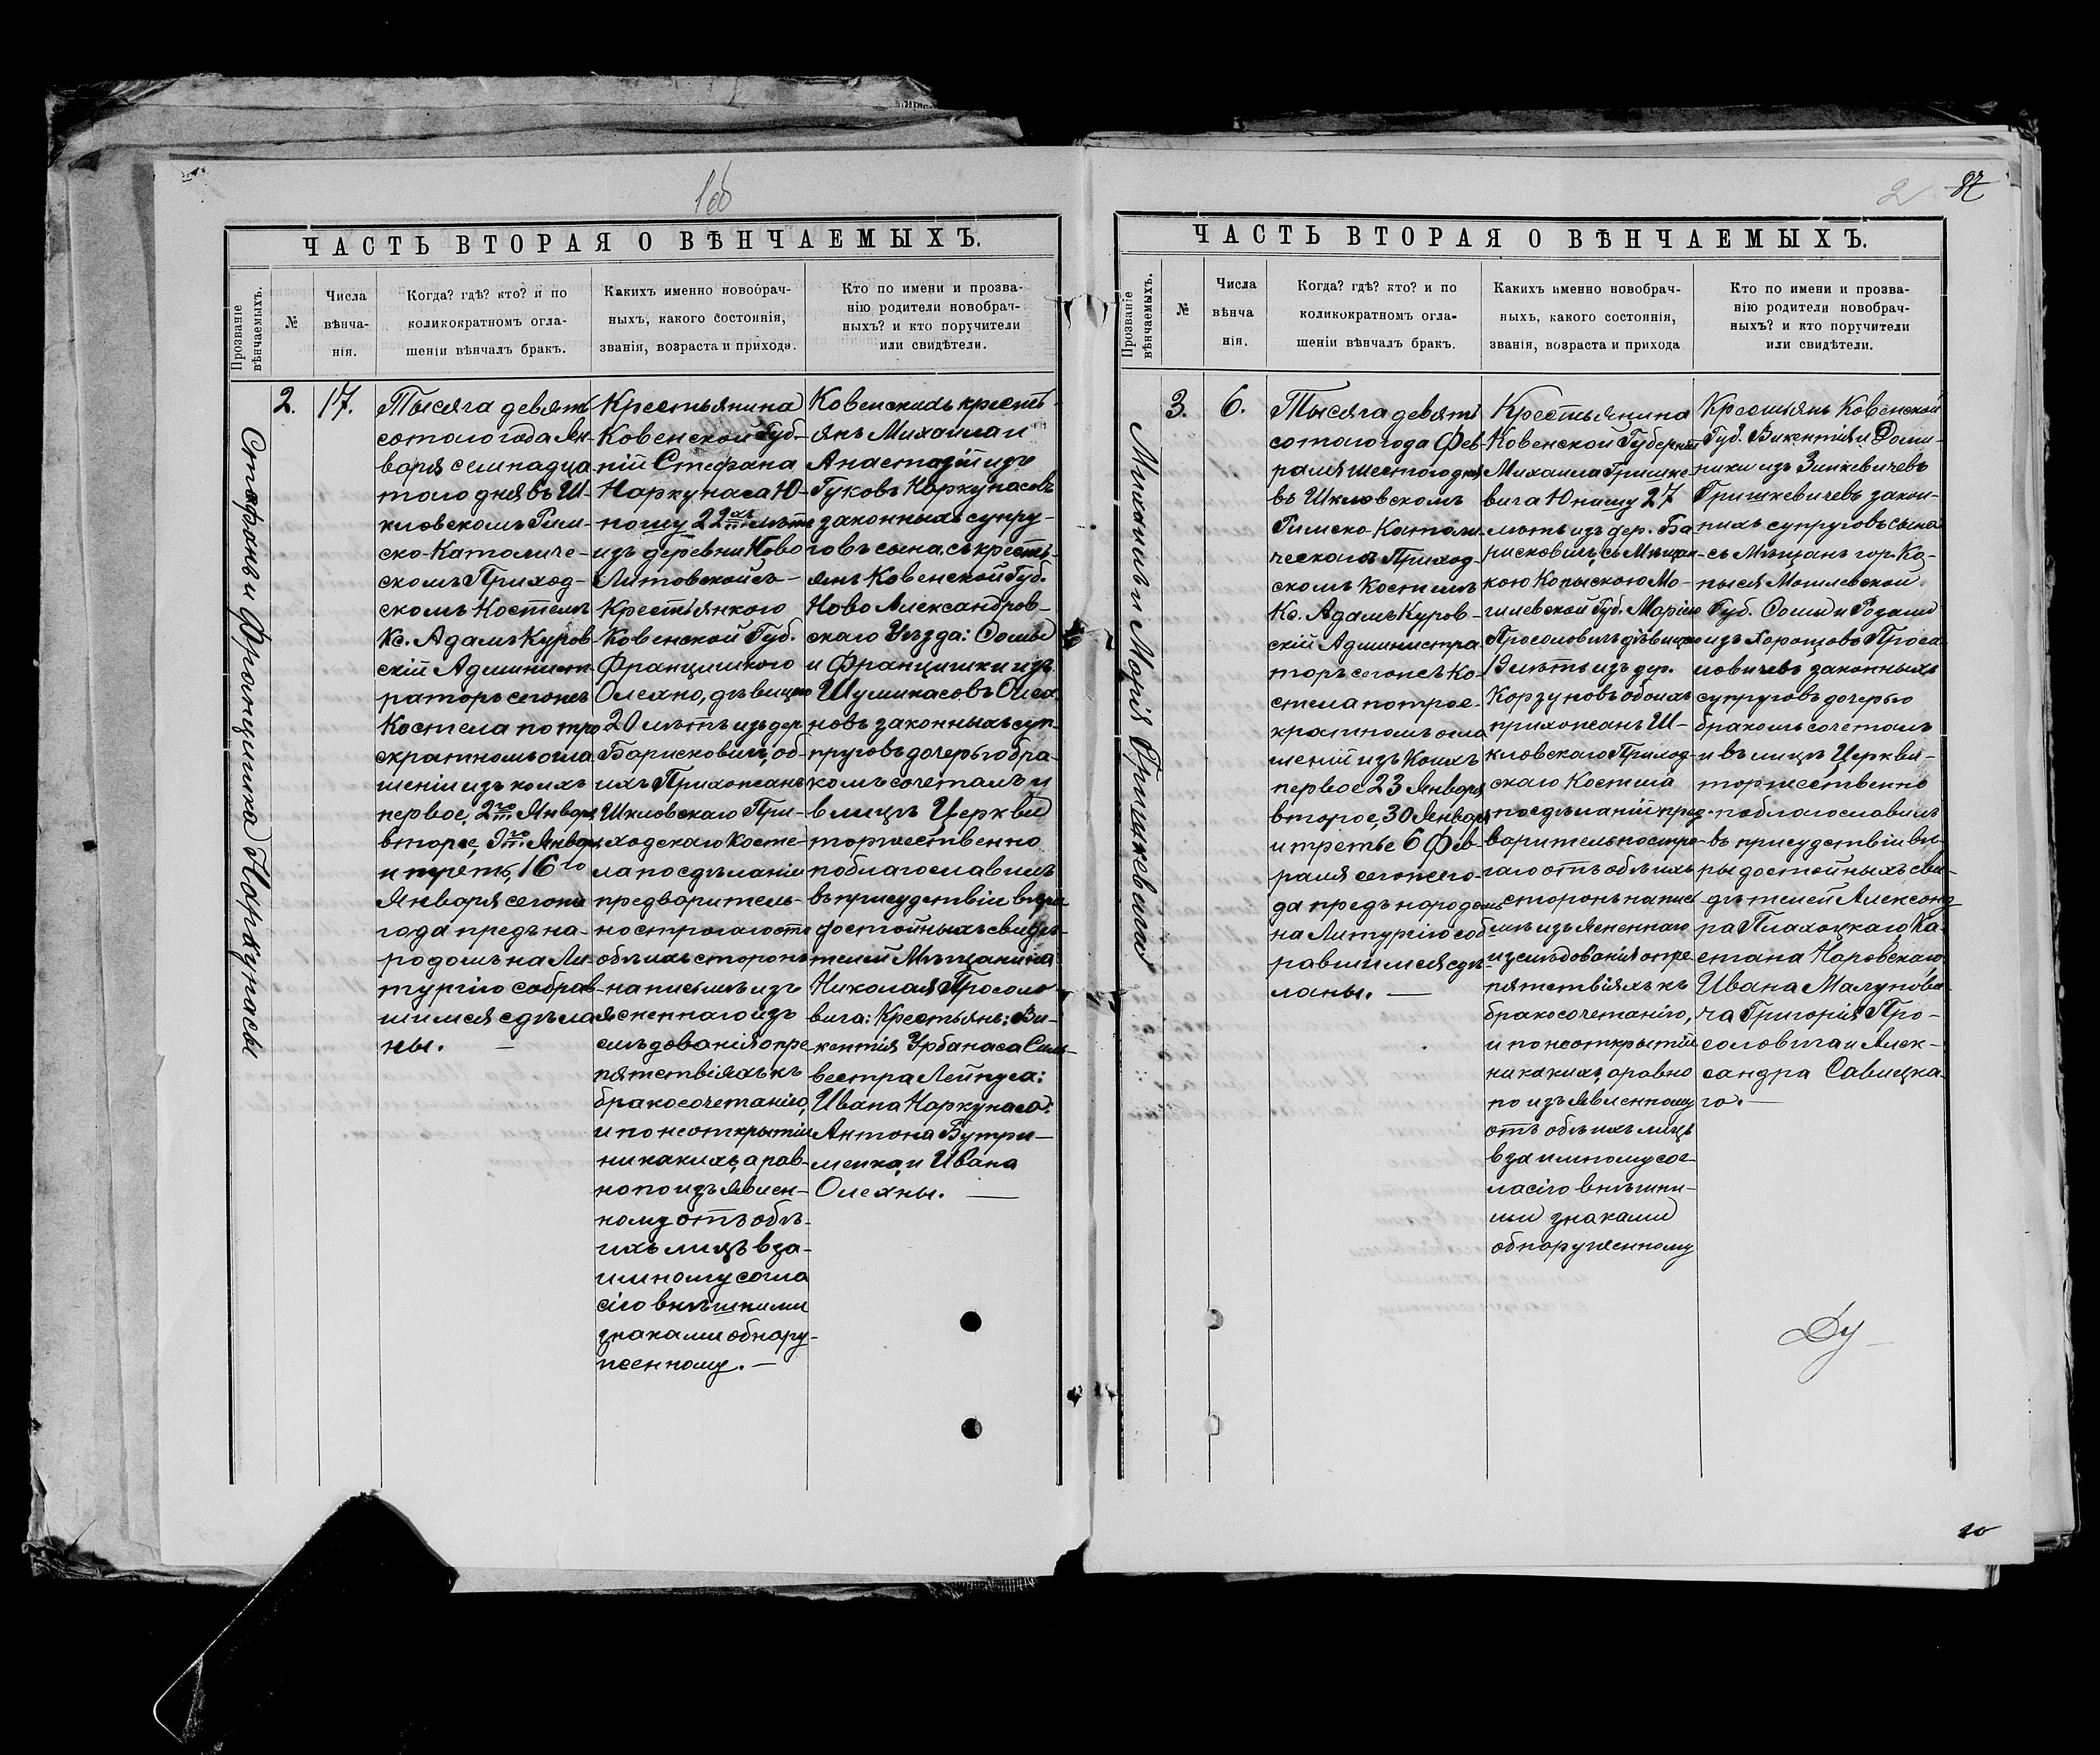 1об
ЧАСТЬ ВТОРАЯ О ВѢНЧАЕМЫХЪ.
Прозваніе
вѣнчаемыхъ.
№
Числа
вѣнча-
нія.
Когда? гдѣ? кто? и по
коликократномъ огла-
шеніи вѣнчалъ бракъ.
Какихъ именно новобрач-
ныхъ, какого состоянія,
званія, возраста и прихода.
Кто по имени и прозва-
нію родители новобрач-
ныхъ? и кто поручители
или свидѣтели.
Стефанъ и Францишка Наркунасы
2.
17.
Тысяча девять
сотого года Ян-
варя семнадца
того дня въ Ш-
кловскомъ Рим-
ско-Католиче-
скомъ Приход-
скомъ Костелѣ
Кс. Адамъ Куров-
скій Админист-
раторъ сегожъ
Костела по трое
кратномъ огла
шеніи изъ коихъ
первое, 2го Января
второе, 9го Января
и треть, 16го
Января сегожъ
года предъ на-
родомъ на Ли-
тургію собрав-
шимся сдѣла
ны. —
Крестьянина
Ковенской Губ.-
ній Стефана
Наркунаса Ю-
ношу 22хъ лѣтъ
изъ деревни Ново
Литовской съ-
Крестьянкою
Ковенской Губ.
Францишкою
Олехно, дѣвицею
20 лѣтъ изъ дер
Барисковичъ, об-
ихъ Прихожанъ
Шкловскаго При-
ходскаго Косте-
ла по сдѣланіи
предваритель-
но строгаго отъ
обѣихъ сторонъ
на письмѣ изъ
ясненнаго из
слѣдованія опре
пятствіяхъ къ
бракосочетанію,
и по неоткрытіи
никакихъ, а рав-
но по изъявлен-
ному отъ обѣ-
ихъ лицъ вза-
имному согла
сію внѣшними
знаками обнару-
женному. —
Ковенскихъ кресть-
янъ Михаила и
Анастазіи изъ
Гуковъ Наркунасовъ
законныхъ супру-
говъ сына, съ кресть-
янъ Ковенской Губ.
Ново Александров-
скаго Уѣзда: Фомы
и Францишки изъ
Шуминасовъ Олех
новъ законныхъ суп-
руговъ дочерью бра-
комъ сочеталъ и
в лицѣ Церкви
торжественно
поблагославилъ
въ присудствіи вѣры
достойныхъ свидѣ-
телей Мѣщанина
Николая Просоло-
вича: Крестьянъ: Ви-
кентія Урбанаса Силь-
вестра Лейпуса:
Ивана Наркунаса:
Антона Бутри-
менка, и Ивана
Олехны. —
2
87
ЧАСТЬ ВТОРАЯ О ВѢНЧАЕМЫХЪ.
Прозваніе
вѣнчаемыхъ.
№
Числа
вѣнча
нія.
Когда? гдѣ? кто? и по
коликократномъ огла-
шеніи вѣнчалъ бракъ.
Какихъ именно новобрач-
ныхъ, какого состоянія,
званія, возраста и прихода
Кто по имени и прозва-
нію родители новобрач-
ныхъ? и кто поручители
или свидѣтели.
Михаилъ и Марія Гришкевичая
3.
6.
Тысяча девять
сотого года Фев-
раля шестого дня
въ Шкловскомъ
Римско Католи
ческомъ Приход-
скомъ Костелѣ
Кс. Адамъ Куров-
скій Администра
торъ сегожъ Ко-
стела по трое-
кратномъ огла
шеніи изъ Коихъ
первое 23 Января
второе, 30 Января
и третье 6 Фев-
раля сегожъ го-
да предъ народомъ
на Литургію соб
равшимся сдѣ-
ланы. —
Крестьянина
Ковенской Губерніи
Михаила Гришке
вича Юношу 27
лѣтъ изъ дер. Ба
рисковичъ, съ Мѣщан-
кою Копыскою Мо-
гилевской Губ. Маріею
Просоловичъ дѣвицею
19 лѣтъ из дер.
Корзуновъ обоихъ
прихожанъ Ш-
кловскаго Приход-
скаго Костела
по сдѣланіи пред-
варительно стро-
гаго отъ обѣихъ
сторонъ на пись
мѣ изъясненнаго
изслѣдованія опре
пятствіяхъ къ
бракосочетанію,
и по неоткрытіи
никакихъ, а равно
по изъявленному
отъ обѣихъ лицъ
взаимному сог-
ласію внѣшни-
ми знаками
обнаруженному
Крестьянъ Ковенской
Губ. Викентія и Доми-
ники изъ Зинкевичевъ
Гришкевичевъ закон-
ныхъ супруговъ сына
съ Мѣщанъ гор. Ко-
пыся Могилевской
Губ. Фомы и Розаліи
изъ Хорошовъ Просо
ловичевъ законныхъ
супруговъ дочерью
бракомъ сочеталъ
и въ лицѣ Церкви-
торжественно
поблагославилъ
въ присудствіи вѣ-
ры достойныхъ сви-
дѣтелей Александ-
ра Плахоцкаго, Ка-
етана Наровскаго
Ивана Малунови-
ча Григорія Про-
соловича и Алек-
сандра Савицка-
го. —